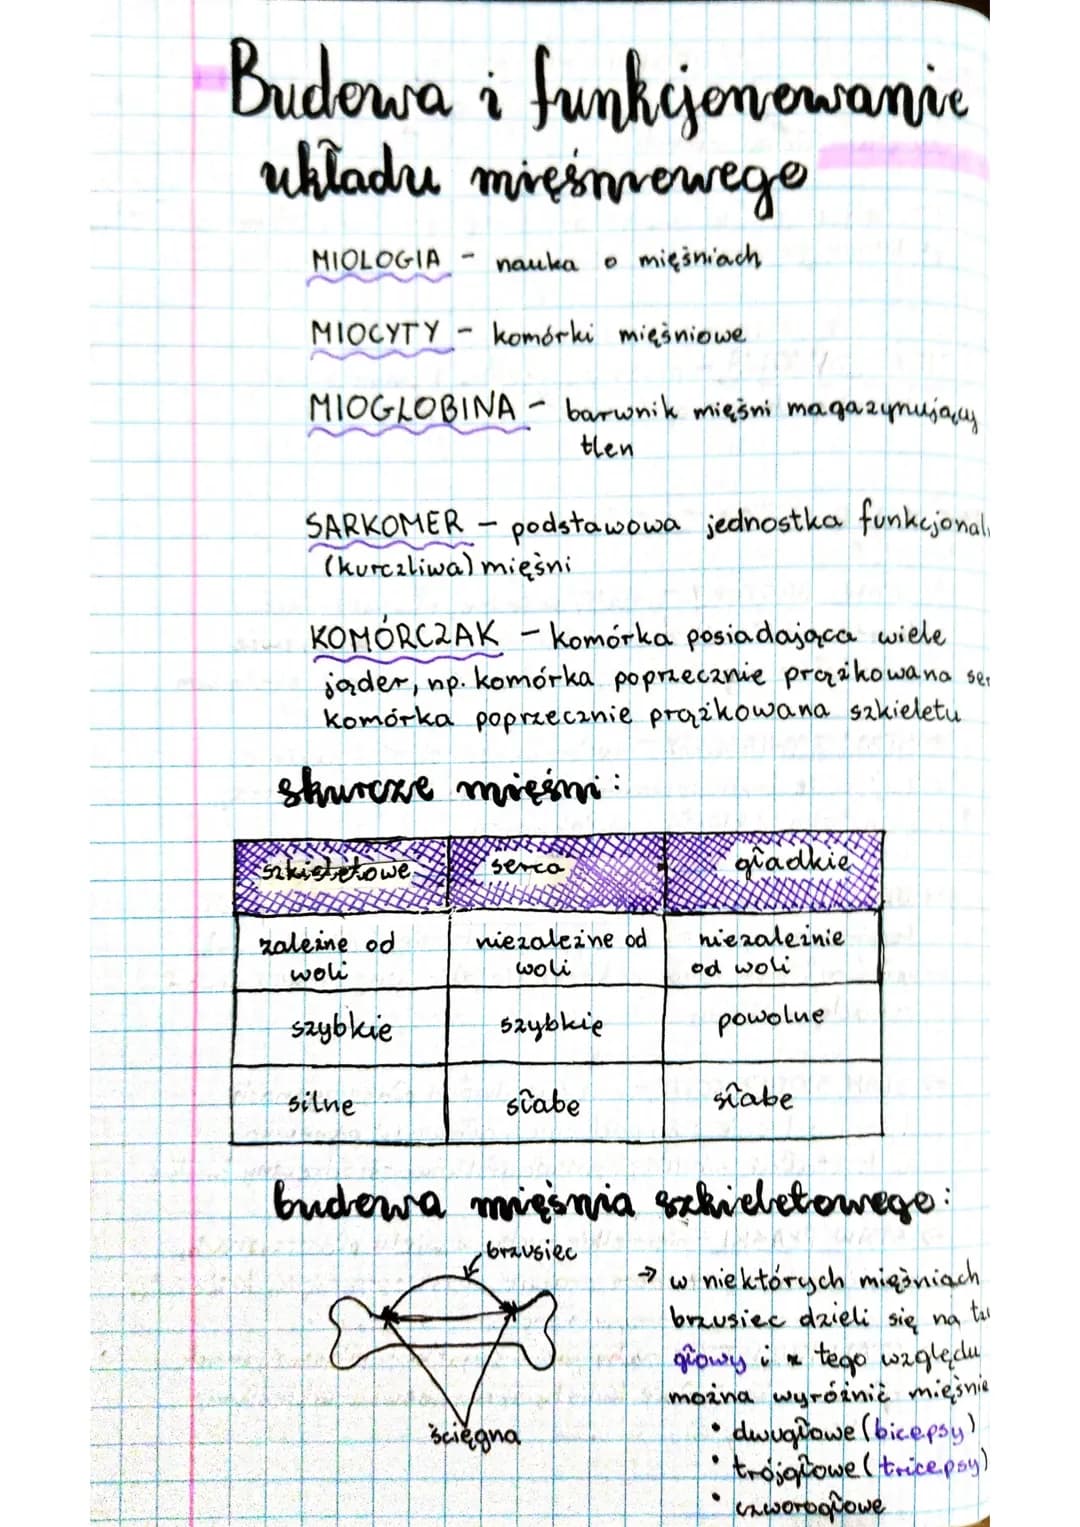 Budowa i funkcjonowanie
układu mięśniowego
MIOLOGIA - nauka o mięśniach
MIOCYTY - komórki mięśniowe
MIOGLOBINA - barwnik mięśni magazynujący
tlen
SARKOMER - podstawowa jednostka funkcjonal
(kurczliwa) mięśni
KOMÓRCZAK - komórka posiadająca wiele
jąder, np. komórka poprzecznie prążkowana ser
komórka poprzecznie prążkowana szkieletu
skurcze mięśni:
szkieletowe serca gładkie
zależne od niezależne od niezależnie
woli woli od woli
szybkie szybkie powolne
silne słabe słabe
budowa mięśnia szkieletowego:
brzusiec
ścięgna
→ w niektórych mięśniach
brzusiec dzieli się na tz
głowy i z tego względu
można wyróżnić mięśnie
• dwugłowe (bicepsy)
• trójgłowe (tricepsy)
• czworogłowe